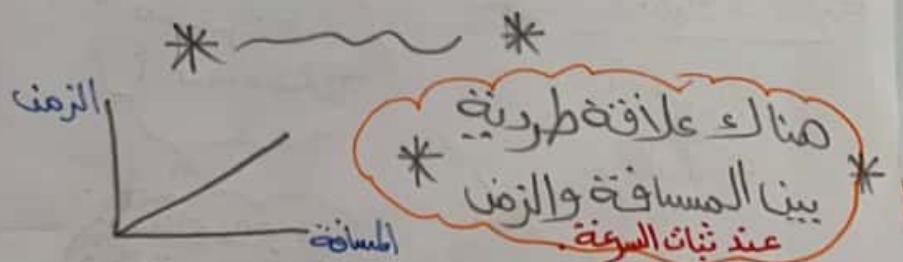 الزمن
المسافة
هناك علاقة طردية
بين المسافة والزمن
عند ثبات السرعة.